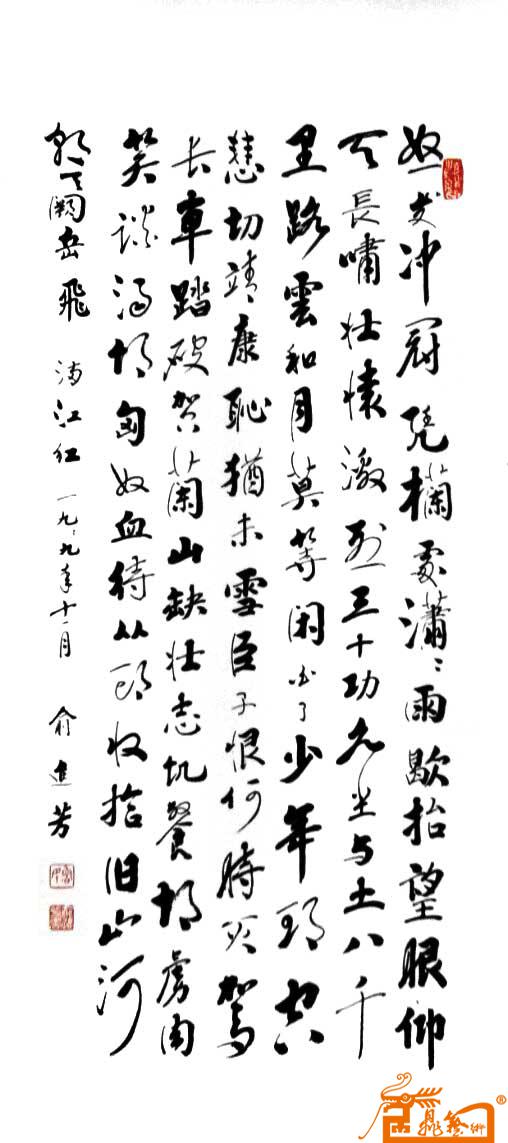 怒发冲冠凭欄處瀟〻雨歇抬望眼仰
天長嘯壮懷激烈三十功名尘与土八千
里路雲和月莫等闲白了少年頭空
悲切靖康恥猶未雪臣子恨何時灭駕
长車踏破贺蘭山缺壮志饥餐胡虜肉
笑谈渴饮匈奴血待从頭收拾旧山河
朝天阙岳飛 满江红 一九〻九年十一月 俞進芳